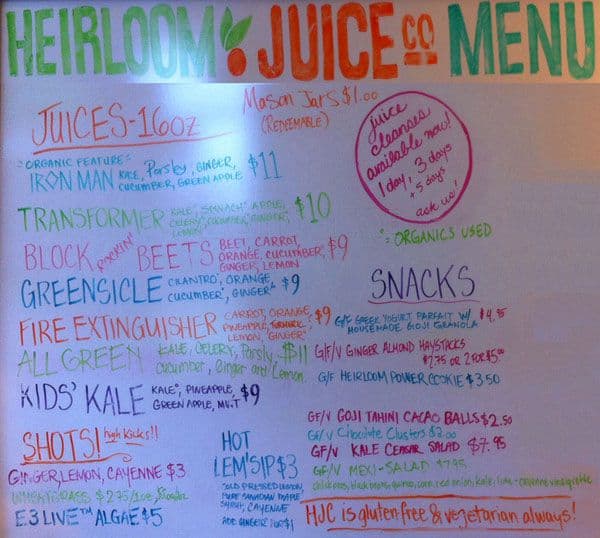 HEIRLOOM JUICE CO MENU
JUICES-16oz
Mason Jars $1.00
(REDEEMABLE)
juice
cleanses
available now!
1 day, 3 days
+ 5 days
ask us!
"ORGANIC FEATURE"
IRON MAN KALE, Parsley, GINGER, $11
CUCUMBER, GREEN APPLE
TRANSFORMER KALE, SPINACH, APPLE, $10
CELERY, CUCUMBER, GINGER,
LEMON
° = ORGANICS USED
BLOCK ROCKIN' BEETS BEET, CARROT, $9
ORANGE, CUCUMBER,
GINGER, LEMON
GREENSICLE CILANTRO, ORANGE, $9
CUCUMBER, GINGER
FIRE EXTINGUISHER CARROT, ORANGE, $9
PINEAPPLE, TURMERIC,
LEMON, GINGER
ALL GREEN KALE, CELERY, Parsly, $11
cucumber, Ginger and Lemon
KIDS' KALE KALE°, PINEAPPLE, $9
GREEN APPLE, MINT
SNACKS
G/F GREEK YOGURT PARFAIT W/ $4.95
HOUSEMADE GOJI GRANOLA
G/F/V GINGER ALMOND HAYSTACKS
$2.75 OR 2 FOR $5.00
G/F HEIRLOOM POWER COOKIE $3.50
GF/V GOJI TAHINI CACAO BALLS $2.50
GF/V Chocolate Clusters $2.00
GF/V KALE CEASAR SALAD $7.95
GF/V MEXI-SALAD $7.95
chickpeas, black beans, quinoa, corn, red onion, kale, lime-
HJC is gluten free & vegetarian always!
SHOTS! high kicks!!
GINGER, LEMON, CAYENNE $3
WHEATGRASS $2.75/1oz
E3 LIVE™ ALGAE $5
HOT
LEM'SIP $3
COLD PRESSED LEMON,
PURE CANADIAN MAPLE
SYRUP, CAYENNE
ADD GINGER FOR $1